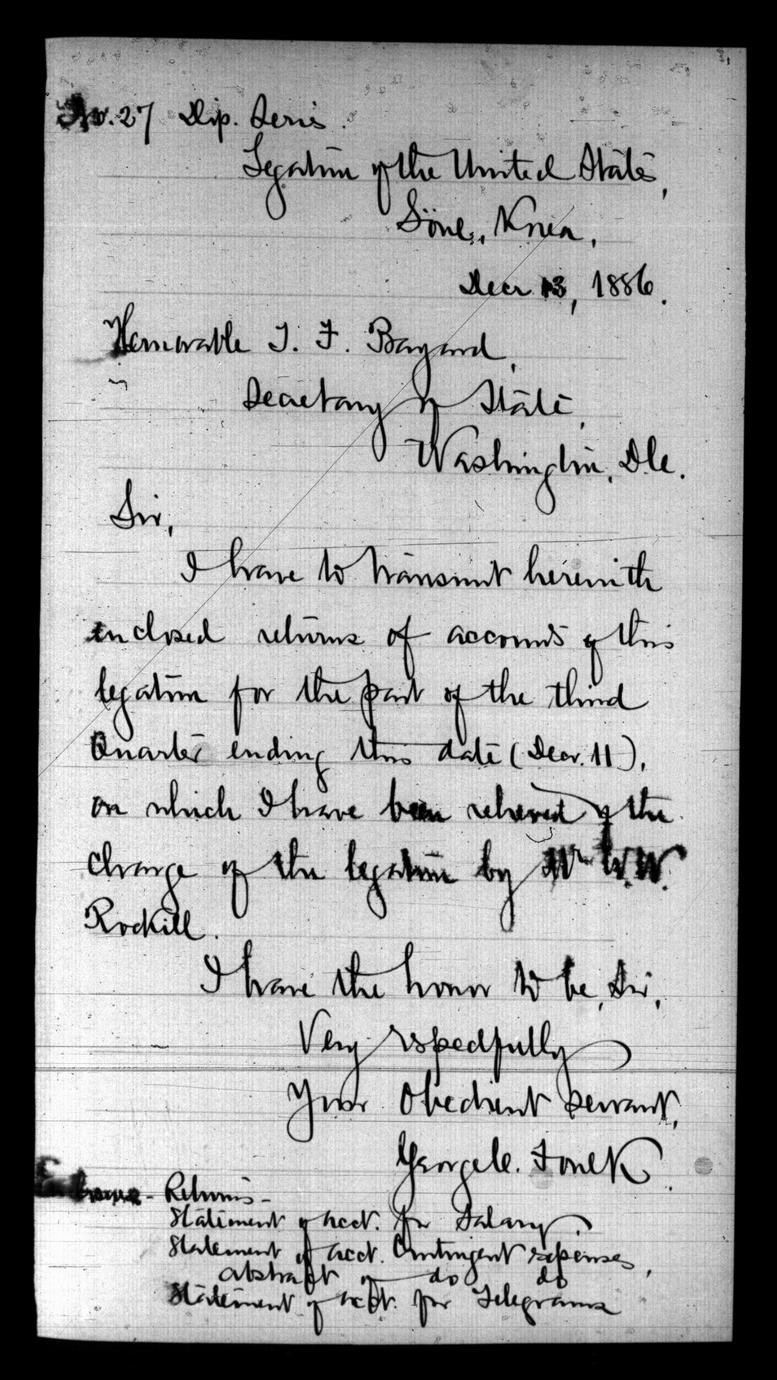 No. 27 Dip. Series.
Legation of the United States,
Söul, Korea,
Decr 13, 1886.
Honorable T. F. Bayard,
Secretary of State,
Washington, D.C.
Sir,
I have to transmit herewith
enclosed returns of accounts of this
legation for the part of the third
Quarter ending this date (Decr. 11),
on which I have been relieved of the
charge of the legation by Mr W. W.
Rockill.
I have the honor to be, Sir,
Very respectfully
Your Obedient Servant,
George C. Foulk.
Enclosures - Returns -
Statement of acct. for Salary,
Statement of acct. Contingent expenses,
abstract of do do
Statement of acct. for Telegrams